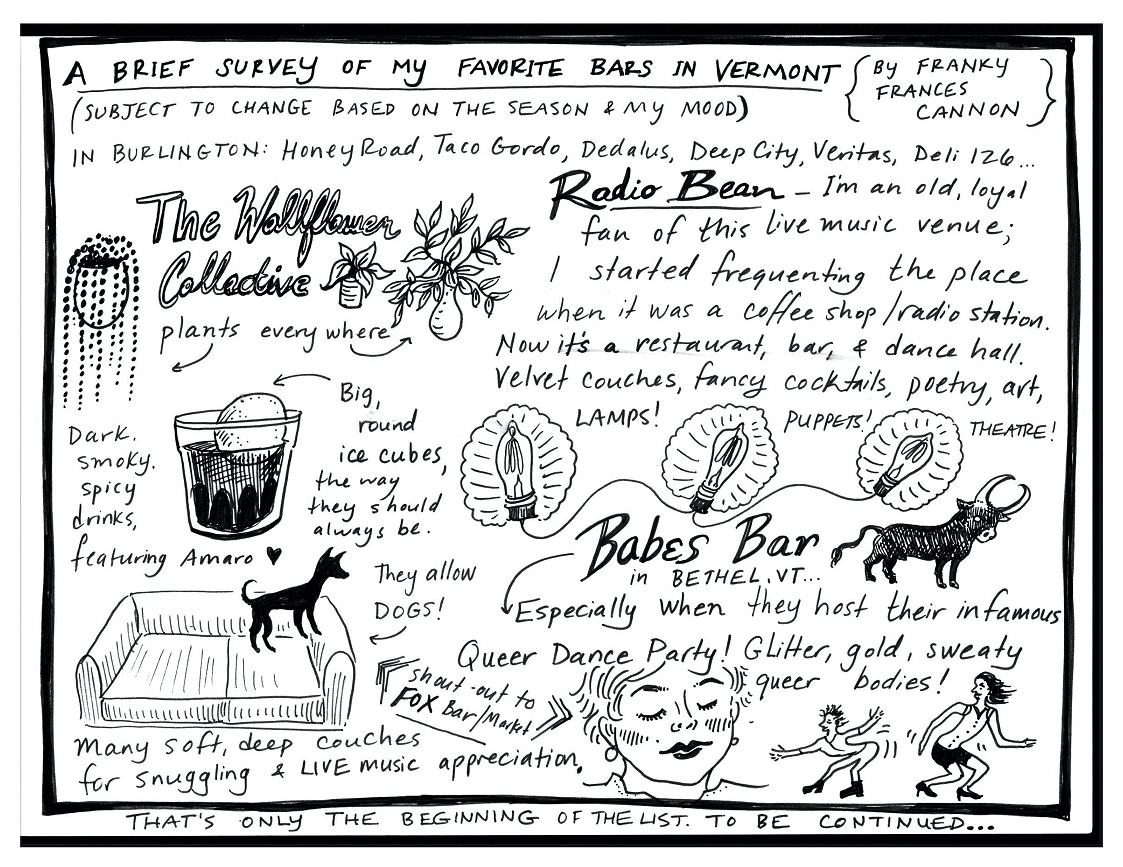 A BRIEF SURVEY OF MY FAVORITE BARS IN VERMONT
{BY FRANKY
FRANCES
CANNON}
(SUBJECT TO CHANGE BASED ON THE SEASON & MY MOOD)
IN BURLINGTON: Honey Road, Taco Gordo, Dedalus, Deep City, Veritas, Deli 126...
The Wallflower
Collective
plants everywhere
Big,
round
ice cubes,
the way
they should
always be.
Dark.
smoky.
spicy
drinks,
featuring Amaro ♥
They allow
DOGS!
Many soft, deep couches
for snuggling & LIVE music appreciation.
shout-out to
FOX Bar/Market
Radio Bean – I'm an old, loyal
fan of this live music venue;
I started frequenting the place
when it was a coffee shop/radio station.
Now it's a restaurant, bar, & dance hall.
Velvet couches, fancy cocktails, poetry, art,
LAMPS! PUPPETS! THEATRE!
Babes Bar
in BETHEL, VT...
Especially when they host their infamous
Queer Dance Party! Glitter, gold, sweaty
queer bodies!
THAT'S ONLY THE BEGINNING OF THE LIST. TO BE CONTINUED...